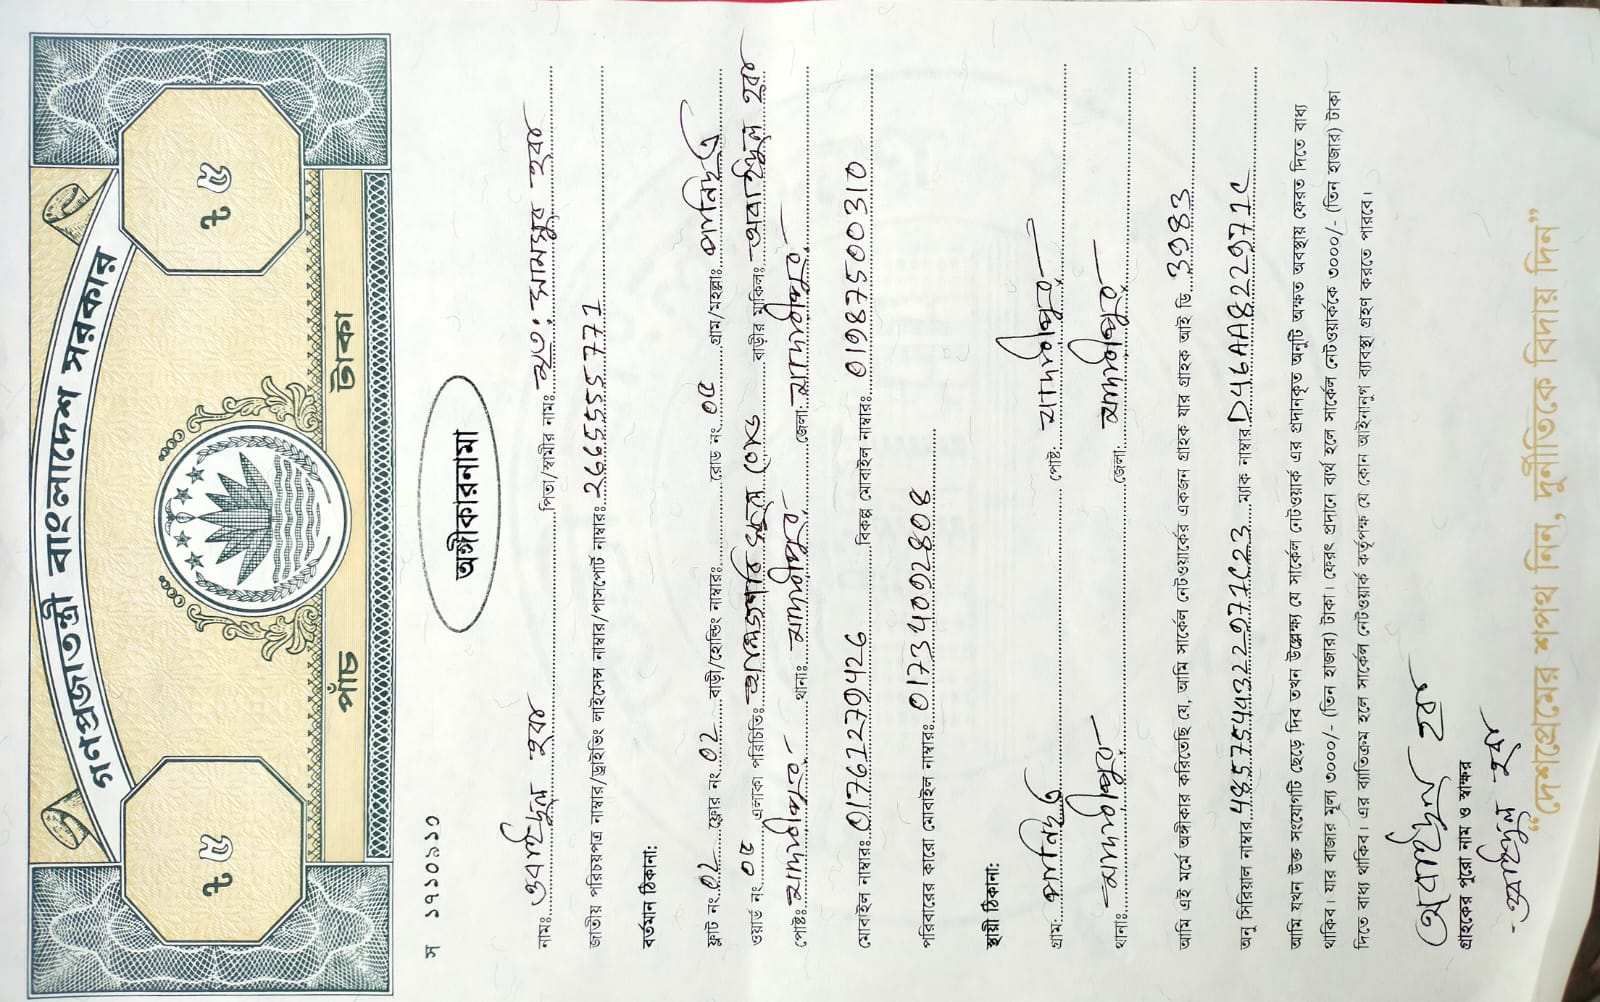 গণপ্রজাতন্ত্রী বাংলাদেশ সরকার
৳ ৫
৳ ৫
পাঁচ টাকা
স ১৭১০৬১০
অঙ্গীকারনামা
নাম: ওবাইদুল হক পিতা/স্বামীর নাম: মৃত: সামসুর হক
জাতীয় পরিচয়পত্র নাম্বার/ড্রাইভিং লাইসেন্স নাম্বার/পাসপোর্ট নাম্বারঃ 2665555771
বর্তমান ঠিকানা:
ফ্লাট নং 02 ফ্লোর নং 02 বাড়ী/হোল্ডিং নাম্বারঃ রোড নং ০৫ গ্রাম/মহল্লাঃ পানিছত্র
ওয়ার্ড নং ০৫ এলাকা পরিচিতিঃ স্কুল রোড বাড়ীর মালিকঃ হক
পোষ্টঃ মাদারীপুর থানাঃ মাদারীপুর জেলা: মাদারীপুর
মোবাইল নাম্বারঃ 01761279426 বিকল্প মোবাইল নাম্বারঃ 01987500310
পরিবারের কারো মোবাইল নাম্বারঃ 01734092808
স্থায়ী ঠিকানা:
গ্রাম: পানিছত্র পোষ্ট: মাদারীপুর
থানাঃ মাদারীপুর জেলা: মাদারীপুর
আমি এই মর্মে অঙ্গীকার করিতেছি যে, আমি সার্কেল নেটওয়ার্কের একজন গ্রাহক যার গ্রাহক আই ডি 3983
অনু সিরিয়াল নাম্বার 4857544322971C23 ম্যাক নাম্বার D46AA822971C
আমি যখন উক্ত সংযোগটি ছেড়ে দিব তখন উল্লেক্ষ্য যে সার্কেল নেটওয়ার্ক এর প্রদানকৃত অনুটি অক্ষত অবস্থায় ফেরত দিতে বাধ্য
থাকিব। যার বাজার মূল্য ৩০০০/- (তিন হাজার) টাকা। ফেরৎ প্রদানে ব্যর্থ হলে সার্কেল নেটওয়ার্ককে ৩০০০/- (তিন হাজার) টাকা
দিতে বাধ্য থাকিব। এর ব্যাতিক্রম হলে সার্কেল নেটওয়ার্ক কর্তৃপক্ষ যে কোন আইনানুগ ব্যাবস্থা গ্রহণ করতে পারবে।
ওবাইদুল হক
গ্রাহকের পুরো নাম ও স্বাক্ষর
হক
“দেশপ্রেমের শপথ নিন, দুর্নীতিকে বিদায় দিন”